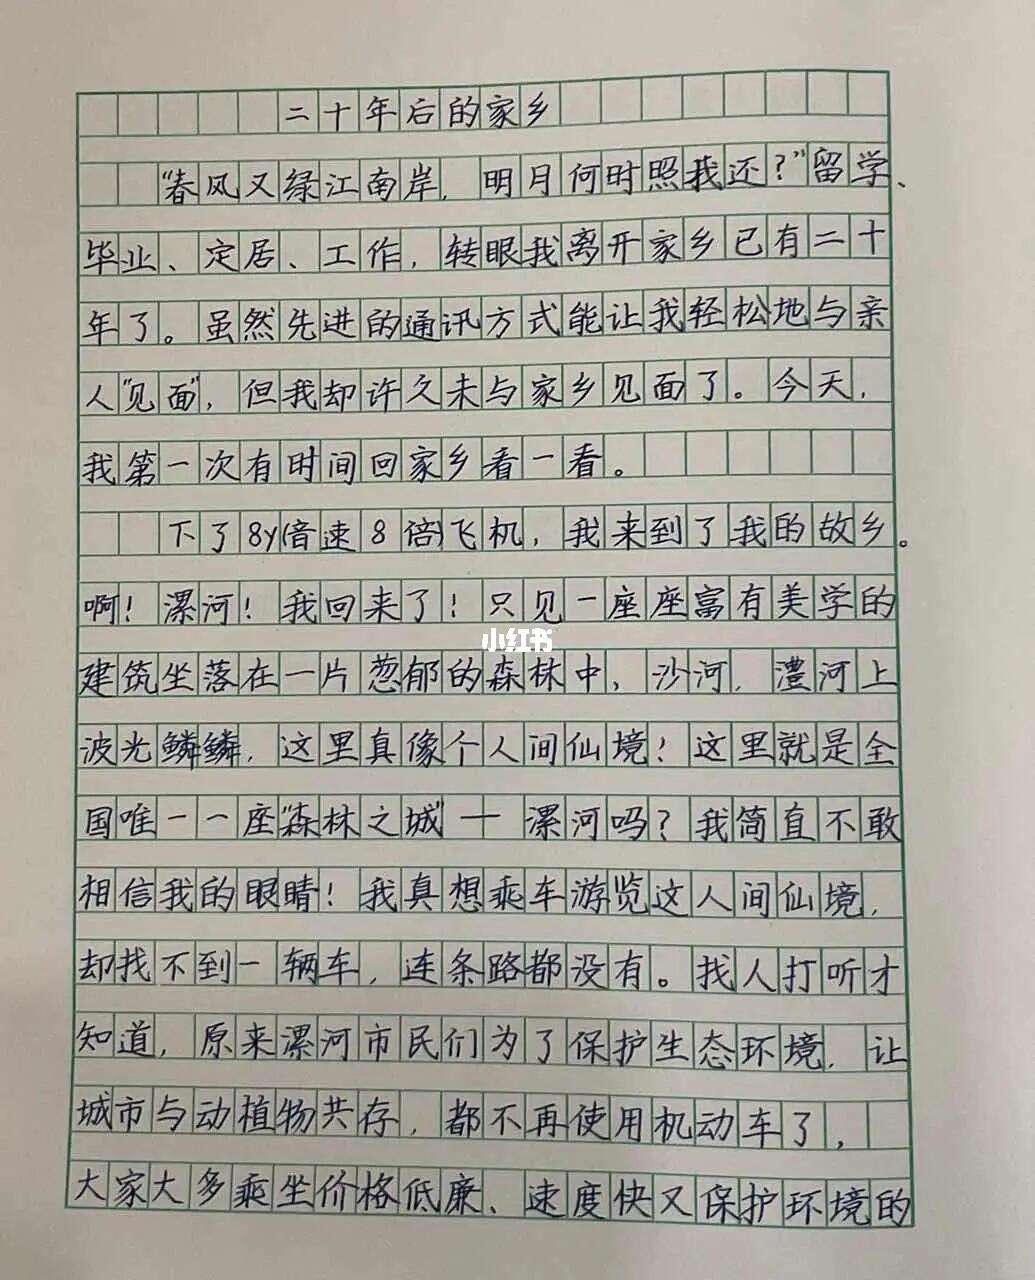 二十年后的家乡
“春风又绿江南岸，明月何时照我还？”留学、
毕业、定居、工作，转眼我离开家乡已有二十
年了。虽然先进的通讯方式能让我轻松地与亲
人“见面”，但我却许久未与家乡见面了。今天，
我第一次有时间回家乡看一看。
下了8y(音速8倍)飞机，我来到了我的故乡。
啊！漯河！我回来了！只见一座座富有美学的
小红书
建筑坐落在一片葱郁的森林中，沙河，澧河上
波光鳞鳞，这里真像个人间仙境！这里就是全
国唯一一座“森林之城”—漯河吗？我简直不敢
相信我的眼睛！我真想乘车游览这人间仙境，
却找不到一辆车，连条路都没有。找人打听才
知道，原来漯河市民们为了保护生态环境，让
城市与动植物共存，都不再使用机动车了，
大家大多乘坐价格低廉、速度快又保护环境的